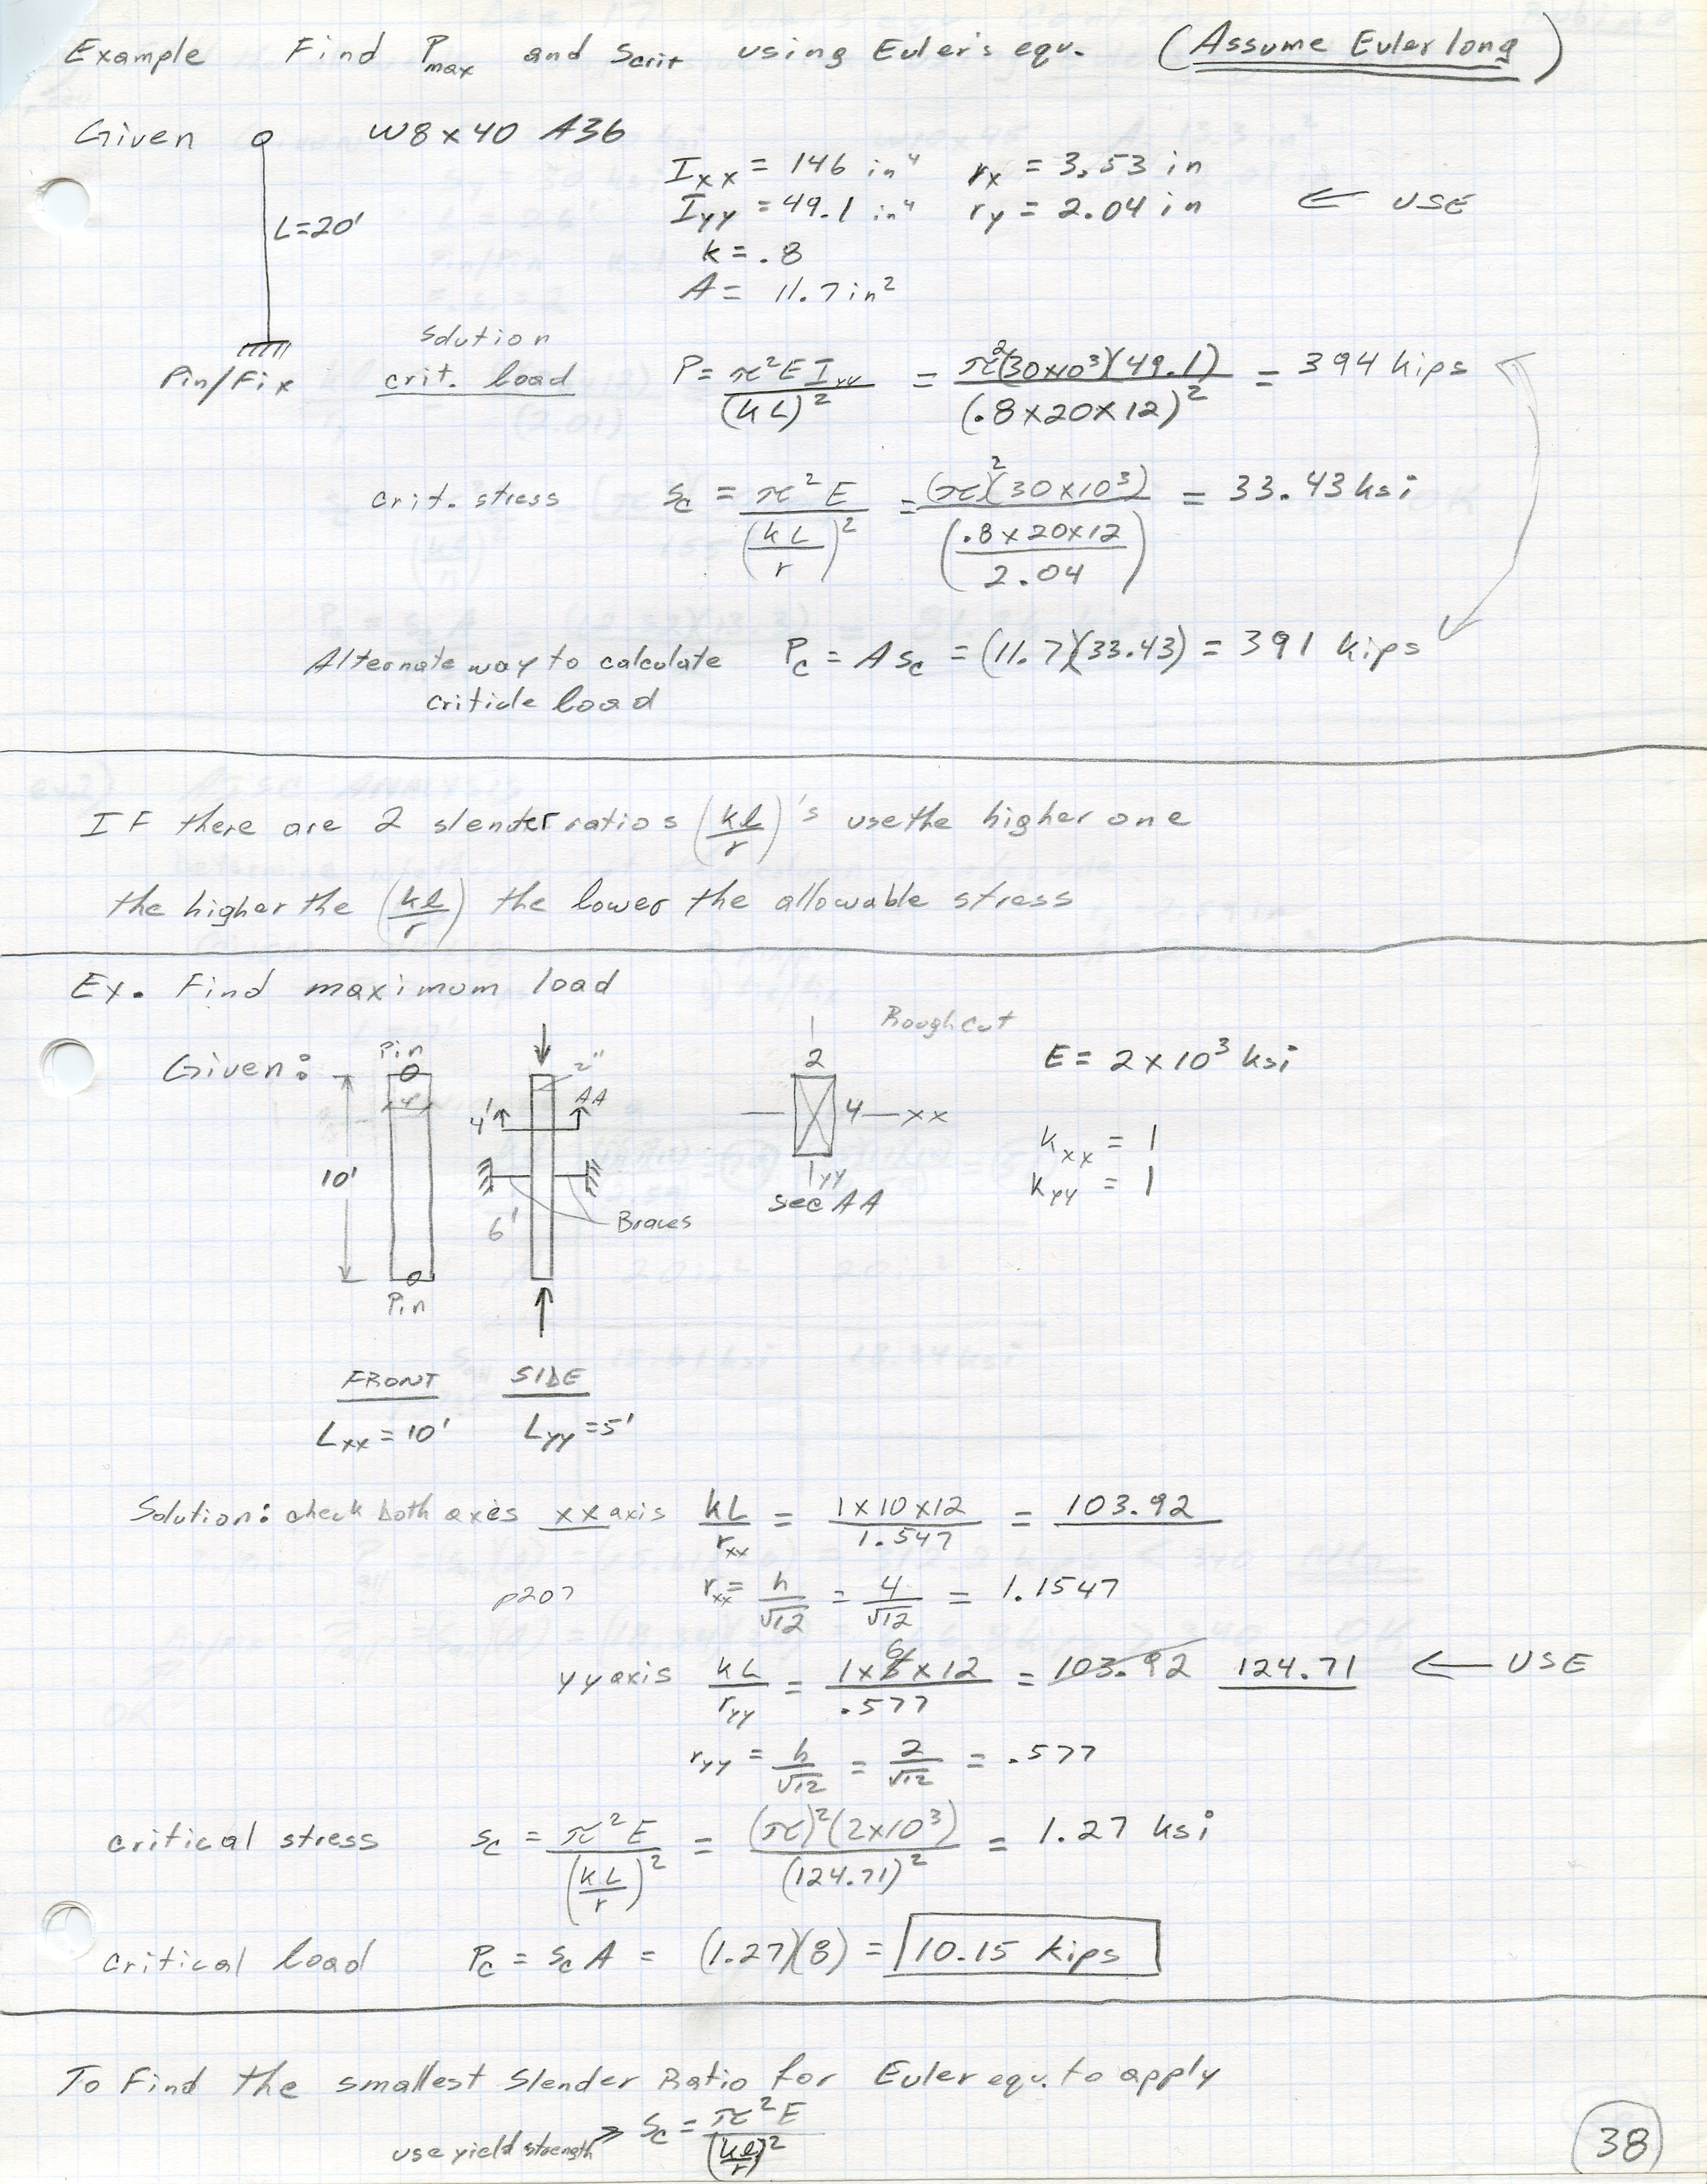 Example Find Pmax and Scrit using Euler's equ. (Assume Euler long)
Given W8x40 A36
Ixx = 146 in⁴ rx = 3.53 in
Iyy = 49.1 in⁴ ry = 2.04 in ← USE
L=20'
k = .8
A = 11.7 in²
Pin/Fix
solution
crit. load P = π²EIyy/(kL)² = π²(30x10³)(49.1)/(.8x20x12)² = 394 kips
crit. stress Sc = π²E/(kL/r)² = (π)²(30x10³)/(.8x20x12/2.04) = 33.43 ksi
Alternate way to calculate Pc = A Sc = (11.7)(33.43) = 391 kips
criticle load
IF there are 2 slender ratios (kl/r)'s use the higher one
the higher the (kl/r) the lower the allowable stress
Ex. Find maximum load
Given:
Pin
4"
10'
Pin
2"
AA
4'
6'
Braces
Rough cut
2
4 xx
yy
sec AA
E = 2x10³ ksi
kxx = 1
kyy = 1
FRONT SIDE
Lxx = 10' Lyy = 5'
Solution: check both axes xx axis kL/rxx = 1x10x12/1.547 = 103.92
p207 rxx = h/√12 = 4/√12 = 1.1547
yy axis kL/ryy = 1x6x12/.577 = 103.92 124.71 ← USE
ryy = h/√12 = 2/√12 = .577
critical stress Sc = π²E/(kL/r)² = (π)²(2x10³)/(124.71)² = 1.27 ksi
critical load Pc = Sc A = (1.27)(8) = 10.15 kips
To Find the smallest Slender Ratio for Euler equ. to apply
use yield strength → Sc = π²E/(kl/r)²
38